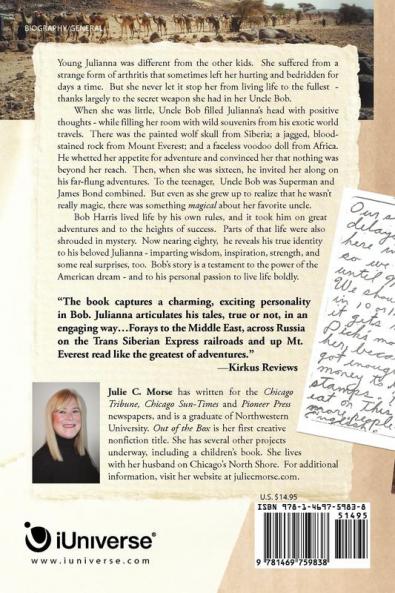 BIOGRAPHY/GENERAL
Young Julianna was different from the other kids. She suffered from a
strange form of arthritis that sometimes left her hurting and bedridden for
days a time. But she never let it stop her from living life to the fullest -
thanks largely to the secret weapon she had in her Uncle Bob.
When she was little, Uncle Bob filled Julianna's head with positive
thoughts - while filling her room with wild souvenirs from his exotic world
travels. There was the painted wolf skull from Siberia; a jagged, blood-
stained rock from Mount Everest; and a faceless voodoo doll from Africa.
He whetted her appetite for adventure and convinced her that nothing was
beyond her reach. Then, when she was sixteen, he invited her along on
his far-flung adventures. To the teenager, Uncle Bob was Superman and
James Bond combined. But even as she grew up to realize that he wasn't
really magic, there was something magical about her favorite uncle.
Bob Harris lived life by his own rules, and it took him on great
adventures and to the heights of success. Parts of that life were also
shrouded in mystery. Now nearing eighty, he reveals his true identity
to his beloved Julianna - imparting wisdom, inspiration, strength, and
some real surprises, too. Bob's story is a testament to the power of the
American dream - and to his personal passion to live life boldly.
"The book captures a charming, exciting personality
in Bob. Julianna articulates his tales, true or not, in an
engaging way…Forays to the Middle East, across Russia
on the Trans Siberian Express railroads and up Mt.
Everest read like the greatest of adventures."
—Kirkus Reviews
Julie C. Morse has written for the Chicago
Tribune, Chicago Sun-Times and Pioneer Press
newspapers, and is a graduate of Northwestern
University. Out of the Box is her first creative
nonfiction title. She has several other projects
underway, including a children's book. She lives
with her husband on Chicago's North Shore. For additional
information, visit her website at juliecmorse.com.
delay
here
so
until
We
in
it gets
her beca
got enough
money to
stamps
eat
more people
U.S. $14.95
ISBN 978-1-4697-5983-8
51495
9 781469 759838
iUniverse®
www.iuniverse.com